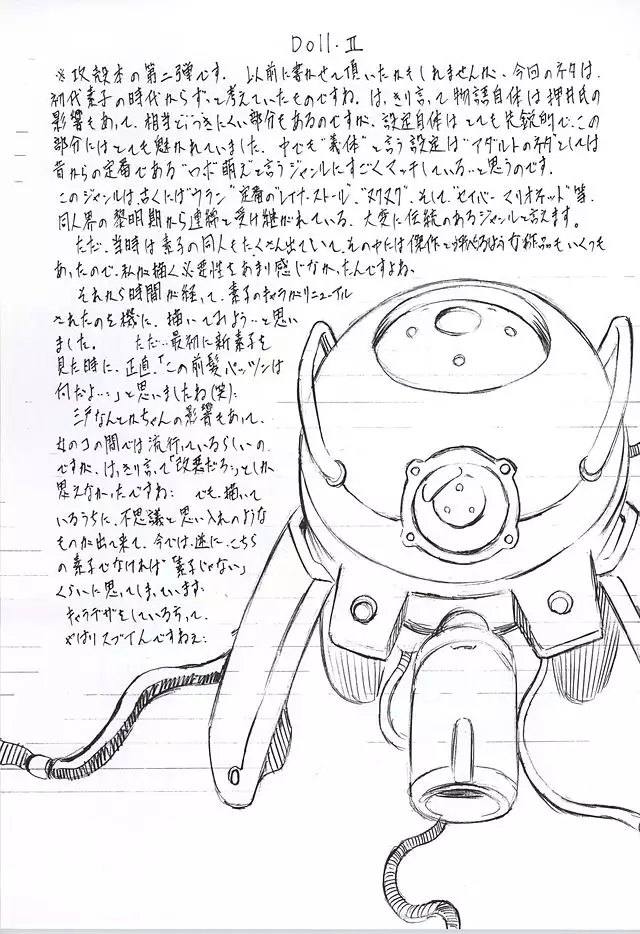 Doll.Ⅱ
※攻殻本の第二弾です. 以前に書かせて頂いたかもしれませんが、今回のネタは、
初代素子の時代からずっと考えていたものですね. はっきり言って物語自体は押井氏の
影響もあって、相当とっつきにくい部分もあるのですが、設定自体はとても先鋭的で、この
部分にはとても魅かれていました. 中でも"義体"と言う設定は"アダルトのネタ"としては
昔からの定番である"ロボ萌え"と言うジャンルにすごくマッチしている…と思うのです.
このジャンルは、古くは"ウラン"定番の"レイナ・ストール"、"ヌクヌク"、そして"セイバーマリオネット"等.
同人界の黎明期から連綿と受け継がれている、大変に伝統のあるジャンルと言えます.
ただ、当時は素子の同人もたくさん出ていて、その中には傑作と呼べるような作品もいくつも
あったので、私が描く必要性をあまり感じなかったんですよね.
それから時間が経って、素子のキャラがリニューアル
されたのを機に、描いてみよう…と思い
ました. ただ…最初に新素子を
見た時に、正直、「この前髪パッツンは
何だよ…」と思いましたね(笑):
三戸なんとかちゃんの影響もあって、
女のコの間では流行っているらしいの
ですが、はっきり言って「改悪だろ…」としか
思えなかったですね: でも、描いて
いるうちに、不思議と思い入れのような
ものが出て来て、今では、逆に、こちら
の素子でなければ「素子じゃない」
くらいに思ってしまっています.
キャラデザをしている方って、
やはりスゴイんですねェ: